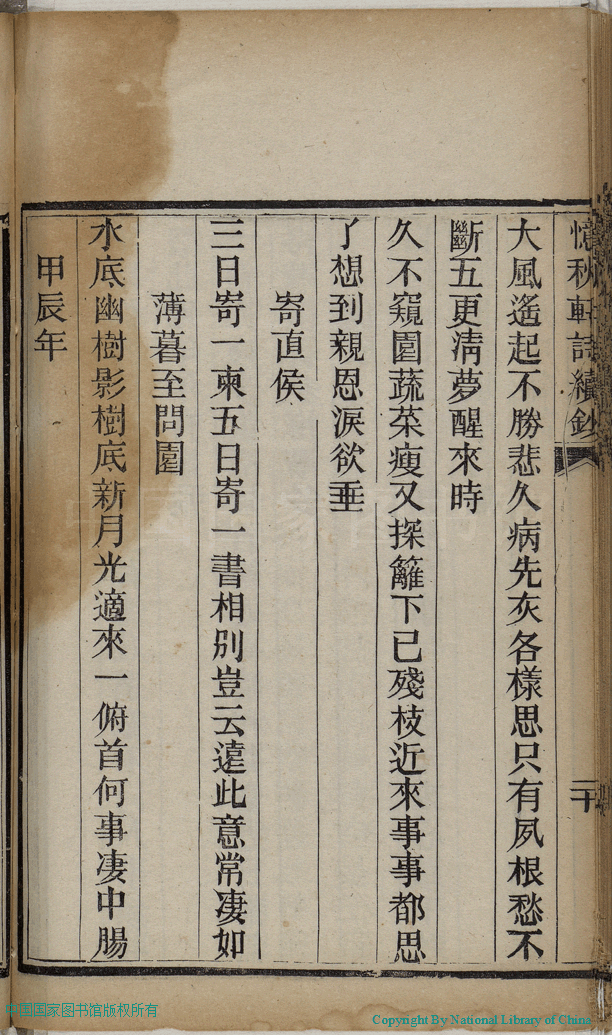 憶秋軒詩續鈔
二十
大風遙起不勝悲久病先灰各樣思只有夙根愁不
斷五更清夢醒來時
久不窺園蔬菜瘦又探籬下已殘枝近來事事都思
了想到親恩淚欲垂
寄直侯
三日寄一柬五日寄一書相別豈云遠此意常淒如
薄暮至問園
水底幽樹影樹底新月光適來一俯首何事淒中腸
甲辰年
中国国家图书馆版权所有
Copyright By National Library of China